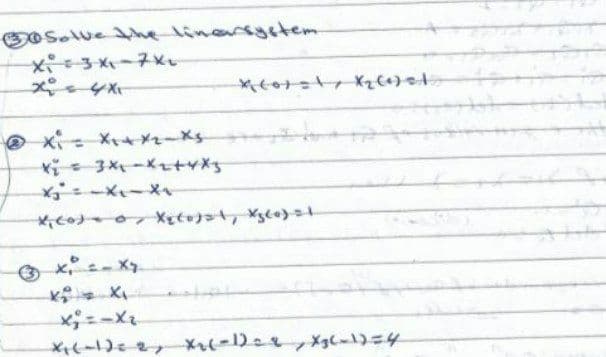 ③① Solve the linear system
x₁° = 3x₁ - 7x₂
x₂° = 4x₁ x₁(0) = 1, x₂(0) = 1
② x₁° = x₁ + x₂ - x₃
x₂° = 3x₁ - x₂ + 4x₃
x₃° = -x₁ - x₂
x₁(0) = 0, x₂(0) = 1, x₃(0) = 1
③ x₁° = -x₃
x₂° = x₁
x₃° = -x₂
x₁(-1) = 2, x₂(-1) = 2, x₃(-1) = 4